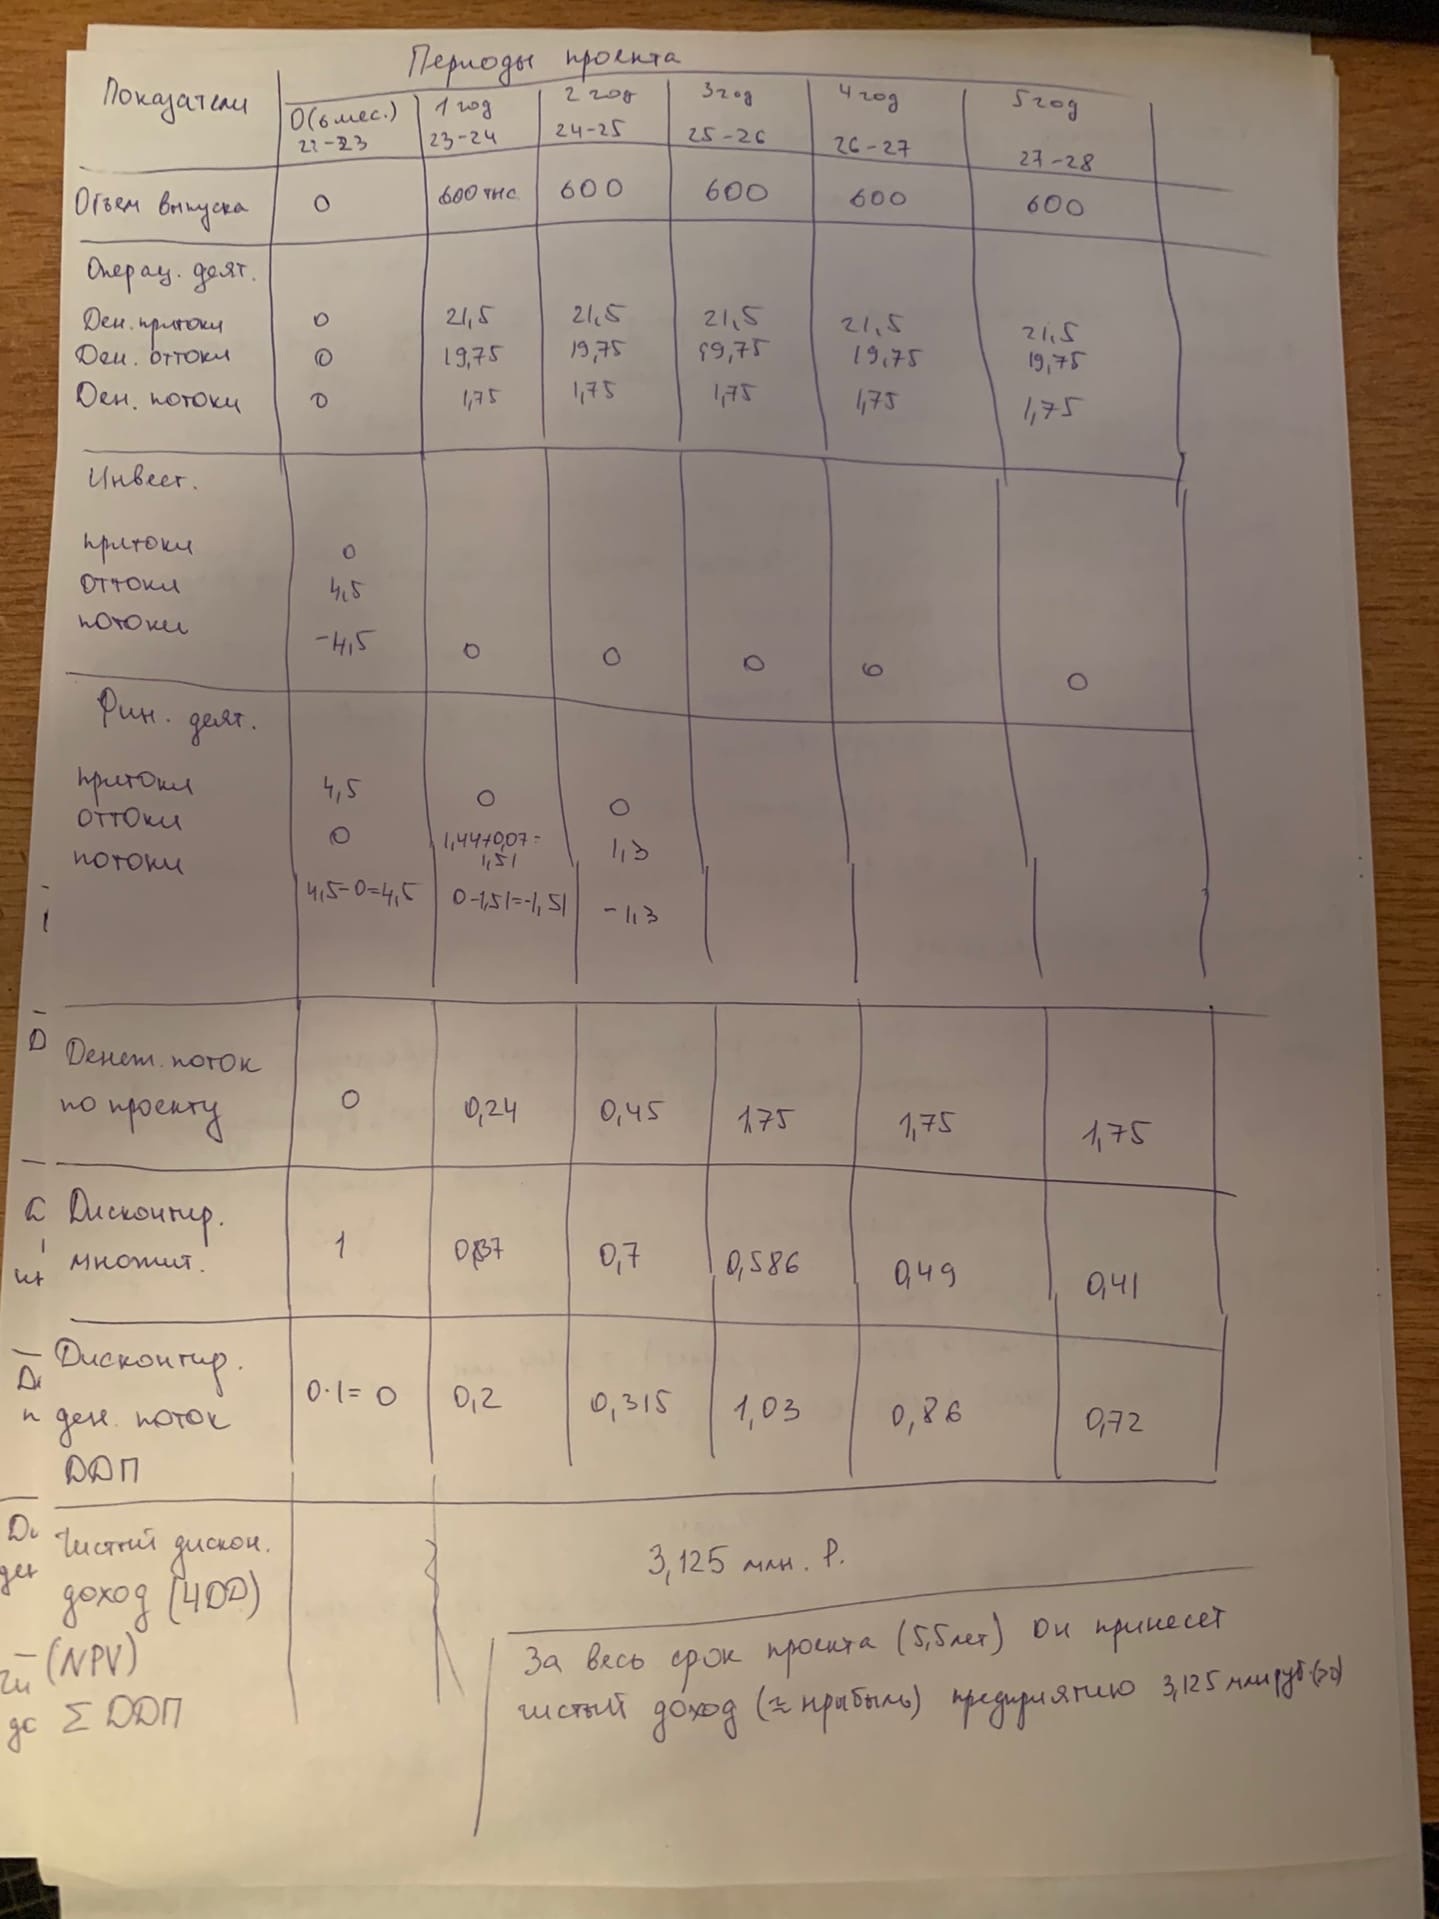 Периоды проекта
Показатели
0 (6 мес.) 1 год 2 год 3 год 4 год 5 год
22-23 23-24 24-25 25-26 26-27 27-28
Объем выпуска 0 600 тыс. 600 600 600 600
Операц. деят.
Ден. притоки 0 21,5 21,5 21,5 21,5 21,5
Ден. оттоки 0 19,75 19,75 19,75 19,75 19,75
Ден. потоки 0 1,75 1,75 1,75 1,75 1,75
Инвест.
притоки 0
оттоки 4,5
потоки -4,5 0 0 0 0 0
Фин. деят.
притоки 4,5 0 0
оттоки 0 1,44+0,07= 1,3
1,51
потоки 4,5-0=4,5 0-1,51=-1,51 -1,3
Денеж. поток
по проекту 0 0,24 0,45 1,75 1,75 1,75
Дисконтир.
множит. 1 0,837 0,7 0,586 0,49 0,41
Дисконтир.
ден. поток 0·1=0 0,2 0,315 1,03 0,86 0,72
ДДП
Чистый дискон. 3,125 млн. Р.
доход (ЧДД)
(NPV)
Σ ДДП
За весь срок проекта (5,5 лет) он принесет
чистый доход (≈ прибыль) предприятию 3,125 млн руб (>0)